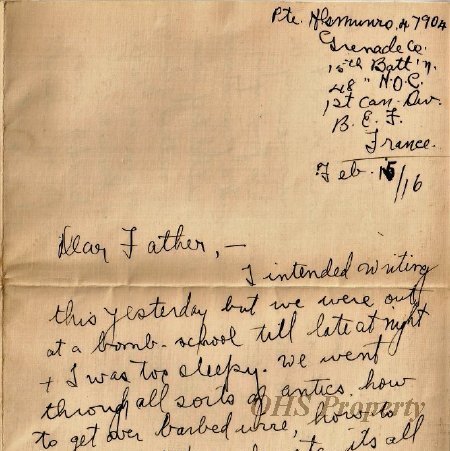 Pte. H Munro. 47904
Grenade Co.
15th Batt'n.
48" H.O.C.
1st Can. Div.
B. E. F.
France.
Feb. 15/16
Dear Father, –
I intended writing
this yesterday but we were out
at a bomb-school till late at night
+ I was too sleepy. We went
through all sorts of antics how
OHS Property
to get over barbed wire, how to
its all